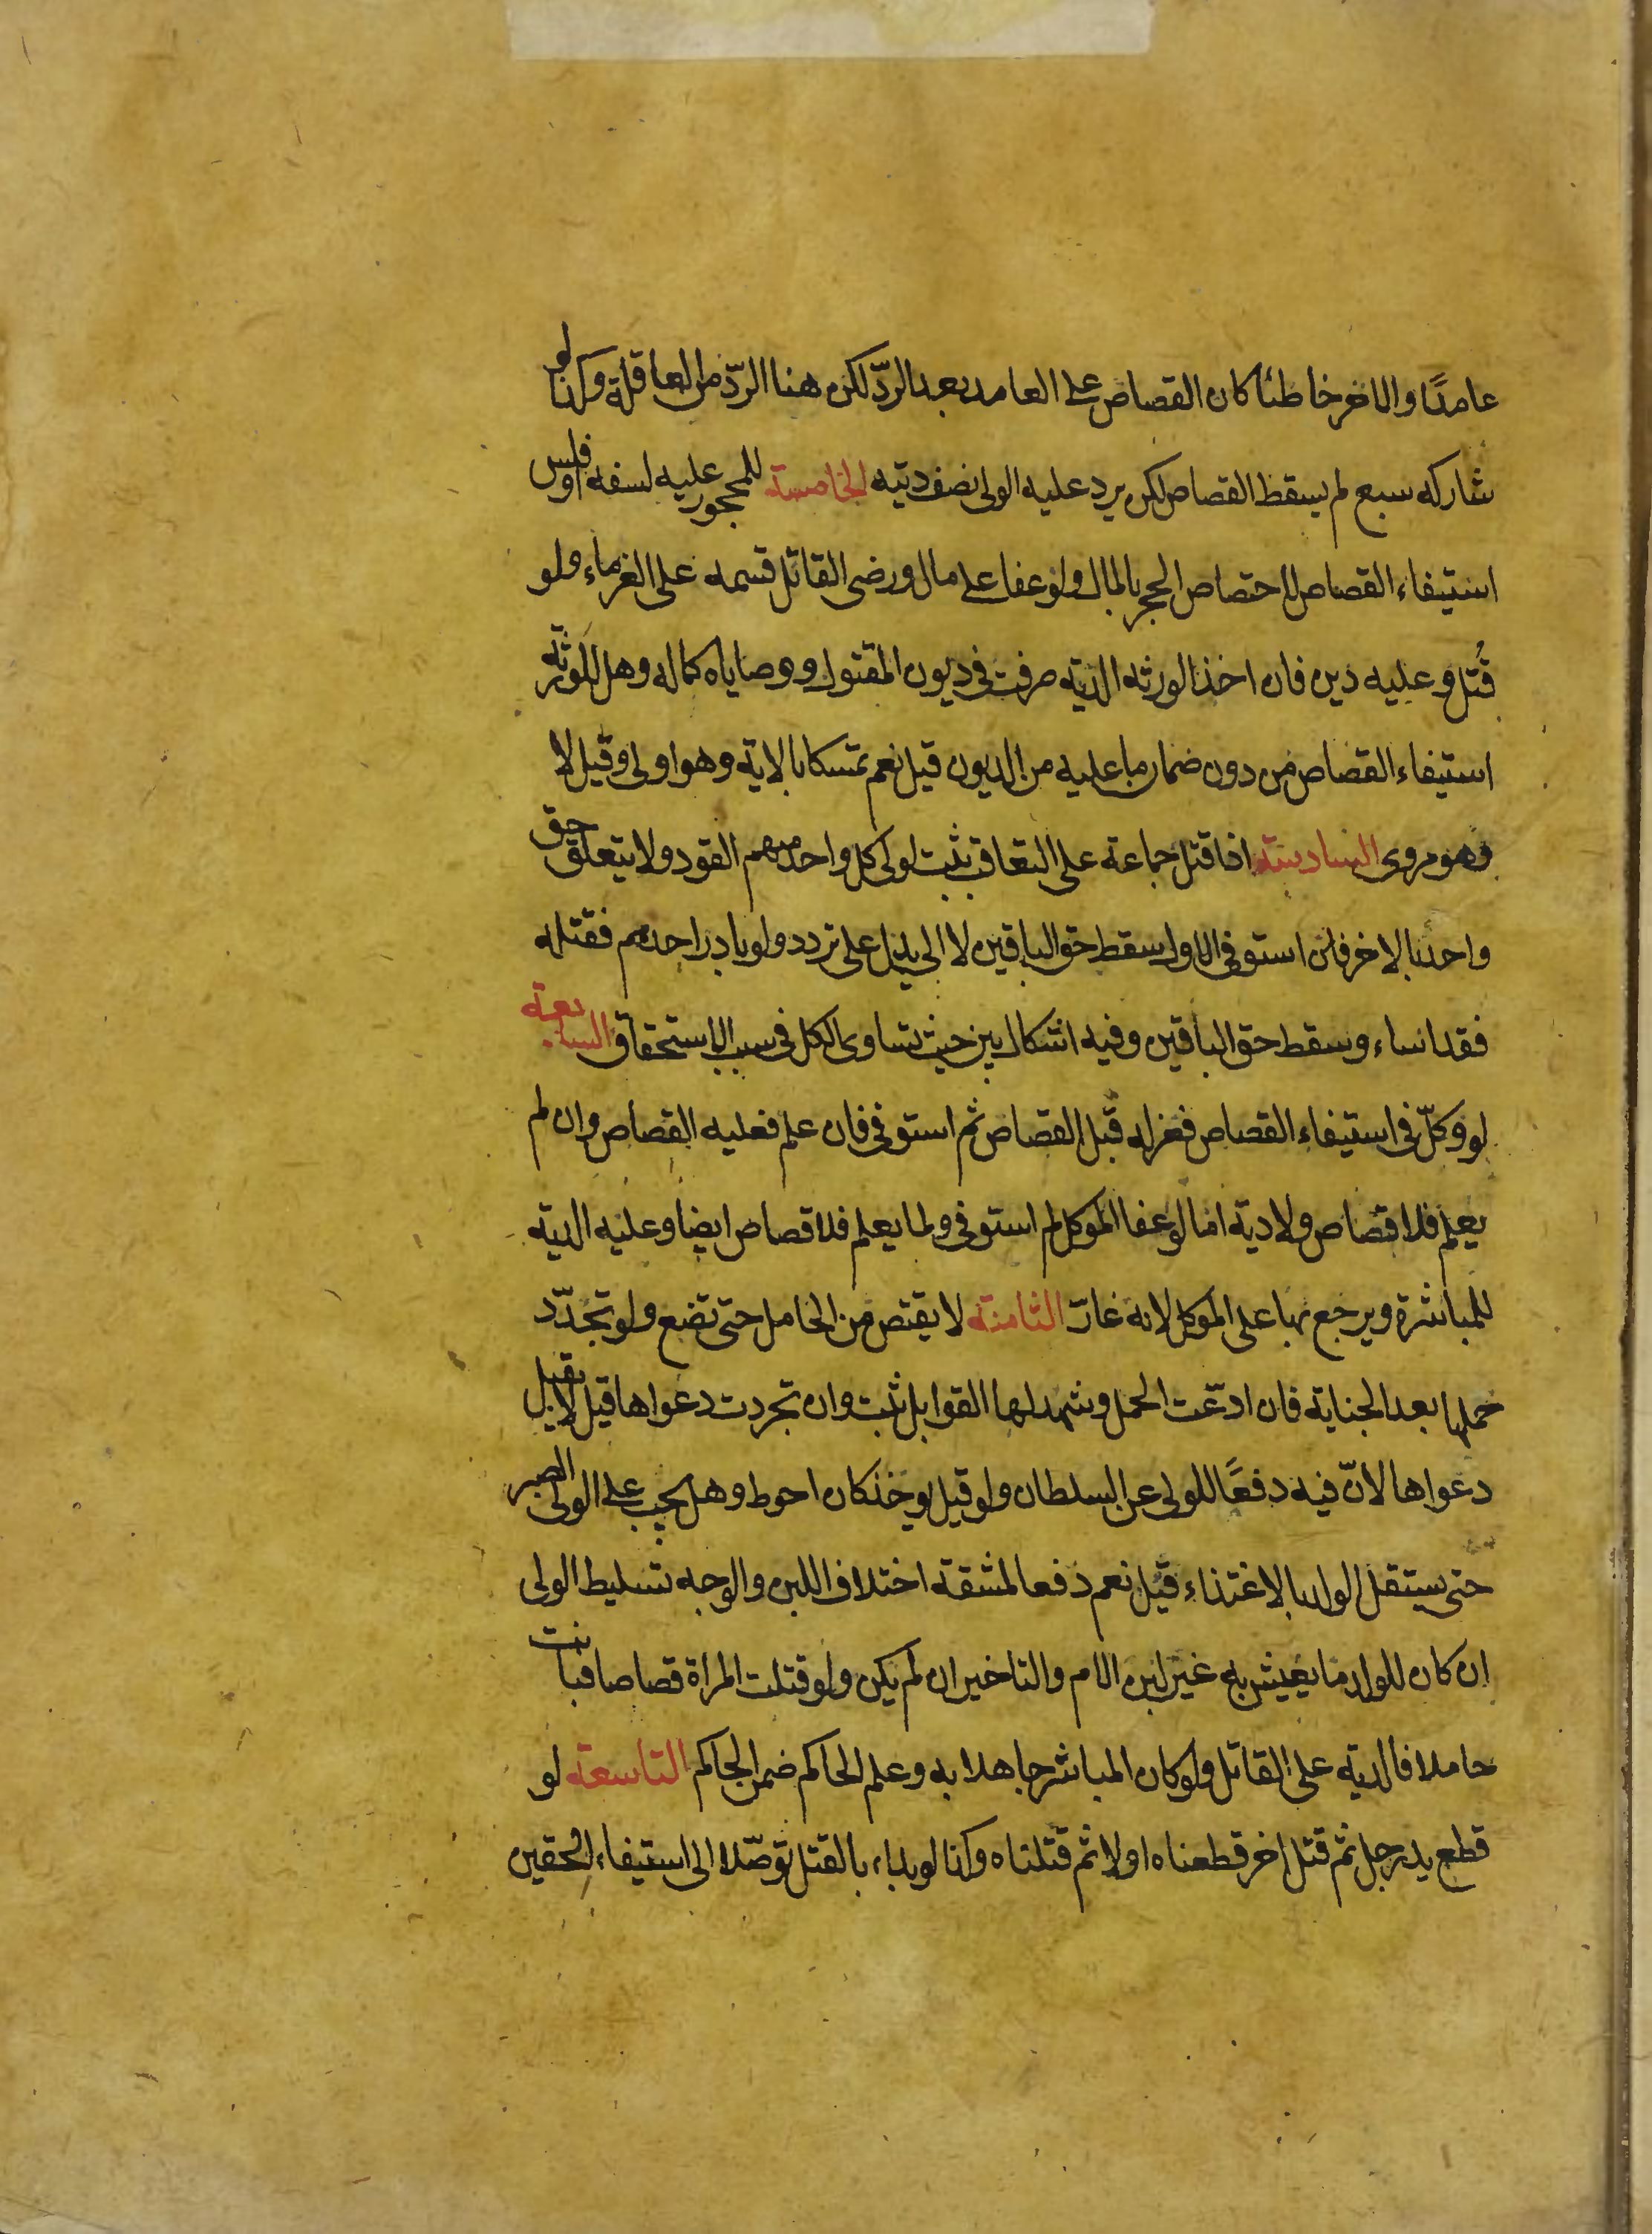 عامدًا والاخر خاطئا كان القصاص على العامد بعد الردّ لكن هنا الردّ من العاقلة وكذا لو
شاركه سبع لم يسقط القصاص لكن يرد عليه الولى نصف ديته الخامسة للمحجور عليه لسفه او فلس
استيفاء القصاص لاختصاص الحجر بالمال ولو عفا على مال ورضى القاتل قسمه على الغرماء ولو
قُتل وعليه دين فان اخذ الورثه الديه صرفت فى ديون المقتول ووصاياه كماله وهل للورثه
استيفاء القصاص من دون ضمان ما عليه من الديون قيل نعم تمسكا بالاية وهو اولى وقيل لا
وهو مروى السادسة اذا قتل جماعة على التعاقب ثبت لولى كل واحد منهم القود ولا يتعلق حق
واحد بالاخر فان استوفى الاول سقط حق الباقين لا الى بدل على تردد ولو بادر احدهم فقتله
فقد اساء وسقط حق الباقين وفيه اشكال من حيث تساوى الكل فى سبب الاستحقاق السابعة
لو وكلّ فى استيفاء القصاص فعزله قبل القصاص ثم استوفى فان علم فعليه القصاص وان لم
يعلم فلا قصاص ولا دية اما لو عفا الموكل ثم استوفى ولما يعلم فلا قصاص ايضا وعليه الدية
للمباشرة ويرجع بها على الموكل لانه غارّ الثامنة لا يقتص من الحامل حتى تضع ولو تجدّد
حملها بعد الجناية فان ادّعت الحمل وشهد لها القوابل ثبت وان تجردت دعواها قيل لا يقبل
دعواها لانّ فيه دفعًا للولى عن السلطان ولو قيل يوخذ كان احوط وهل يجب على الولى الصبر
حتى يستقل الولد بالاغتذاء قيل نعم دفعا لمشقة اختلاف اللبن والوجه تسليط الولى
ان كان للولد ما يعيش به غير لبن الام والتاخير ان لم يكن ولو قتلت المراة قصاصا فبانت
حاملا فالدية على القاتل ولو كان المباشر جاهلا به وعلم الحاكم ضمن الحاكم التاسعة لو
قطع يد رجل ثم قتل اخر قطعناه اولا ثم قتلناه وكذا لو بداء بالقتل توصّلا الى استيفاء الحقين